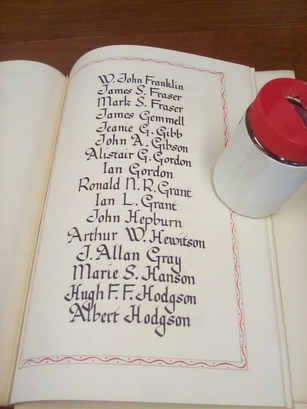 W. John Franklin
James S. Fraser
Mark S. Fraser
James Gemmell
Jeanie G. Gibb
John A. Gibson
Alistair G. Gordon
Ian Gordon
Ronald N. R. Grant
Ian L. Grant
John Hepburn
Arthur W. Hewitson
J. Allan Gray
Marie S. Hanson
Hugh F. F. Hodgson
Albert Hodgson